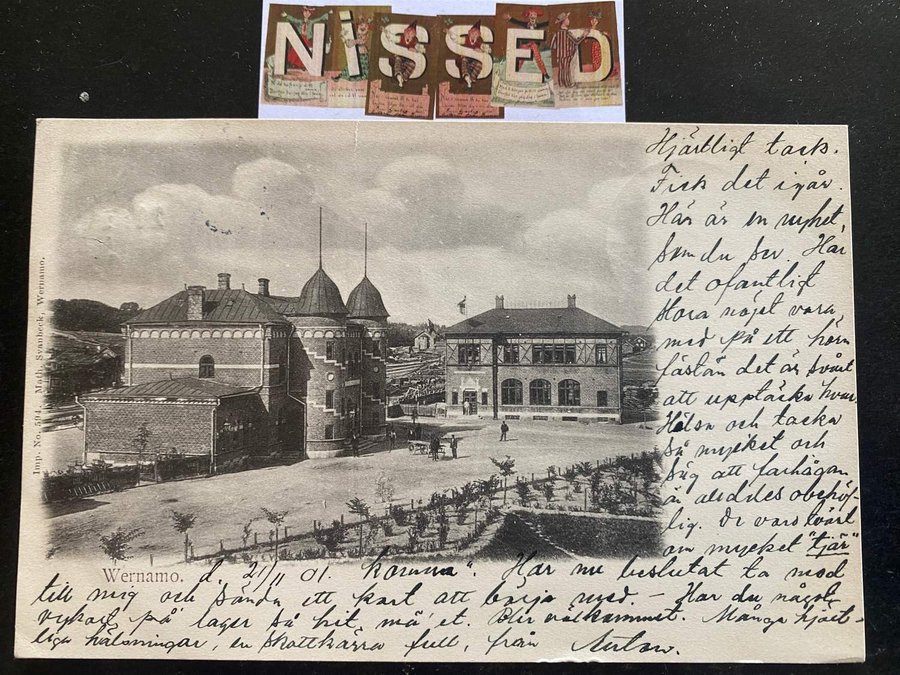 NiSSED
Imp. No. 594. Math. Svanbeck, Wernamo.
Hjärtligt tack.
Fick det igår.
Här är en nyhet,
som du ser. Har
det ofantligt
stora nöjet vara
med på ett hörn
fastän det är svårt
att upptäcka hvar.
Hälsa och tacka
så mycket och
säg att farhågan
är alldeles obehöf-
lig. De voro tvärt
om mycket "tjär
Wernamo. d. 21/11 01. komna". Har nu beslutat ta mod
till mig och sända ett kort att börja med. – Har du något
vykort på lager så hit må'et. Blir välkommet. Många hjärt-
liga hälsningar, en skottkärra full, från Anton.